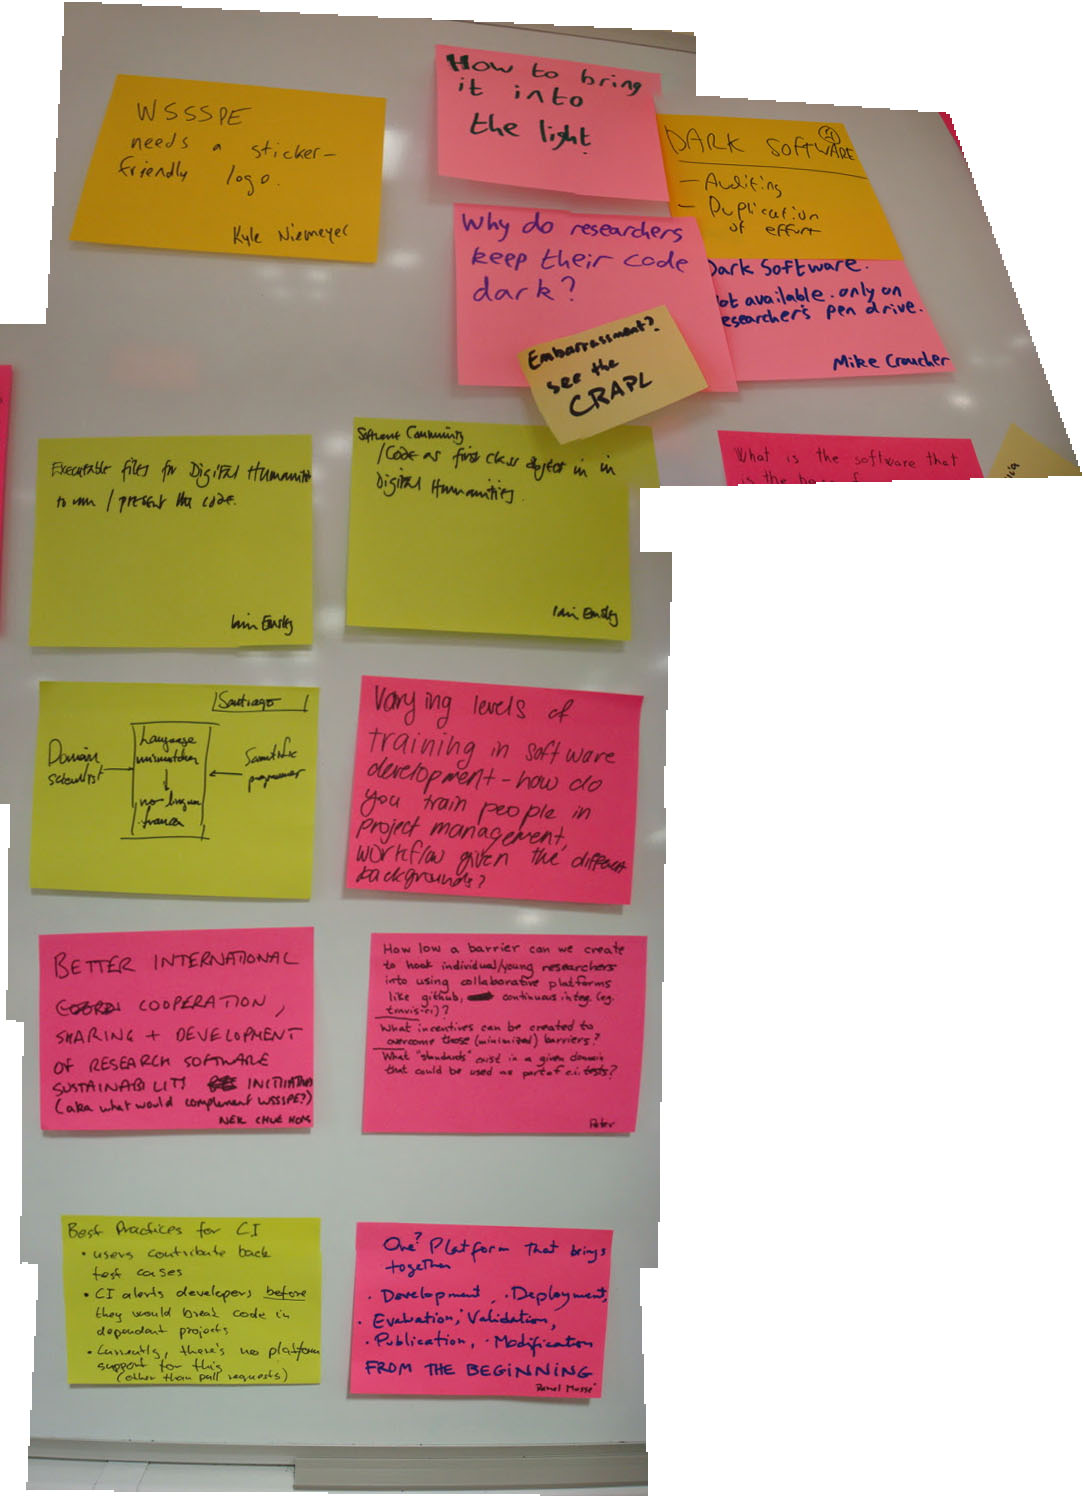 WSSSPE
needs a sticker-
friendly logo.
Kyle Niemeyer
How to bring
it into
the light
DARK SOFTWARE
- Auditing
- Duplication
of effort
Why do researchers
keep their code
dark?
Dark Software.
ot available. only on
esearcher's pen drive.
Mike Croucher
Embarrassment?
see the
CRAPL
What is the software that
Executable files for Digital Humanities
to run / present the code.
Iain Emsley
Software Community
/Code as first class object in in
Digital Humanities.
Iain Emsley
Santiago
Domain
scientist
Language
mismatches
no lingua
franca
Scientific
programmer
Varying levels of
training in software
development - how do
you train people in
project management,
workflow given the different
backgrounds?
BETTER INTERNATIONAL
COOPERATION,
SHARING + DEVELOPMENT
OF RESEARCH SOFTWARE
SUSTAINABILITY INITIATIVES
(aka what would complement WSSSPE?)
NEIL CHUE HONG
How low a barrier can we create
to hook individual/young researchers
into using collaborative platforms
like github, continuous integ. (eg.
travis-ci)?
What incentives can be created to
overcome those (minimized) barriers?
What "standards" exist in a given domain
that could be used as part of c.i. tests?
Peter
Best Practices for CI
• users contribute back
test cases
• CI alerts developers before
they would break code in
dependent projects
• Currently, there's no platform
support for this
(other than pull requests)
One? Platform that brings
together
• Development, • Deployment,
• Evaluation, Validation,
• Publication, • Modification
FROM THE BEGINNING
Daniel Mosse